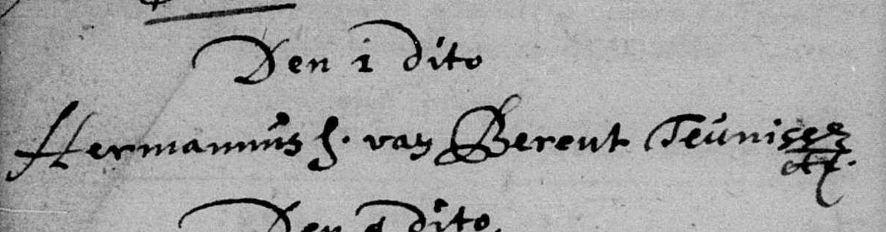 Den 1 dito
Hermannus h. van Berent Teunissen
Den dito